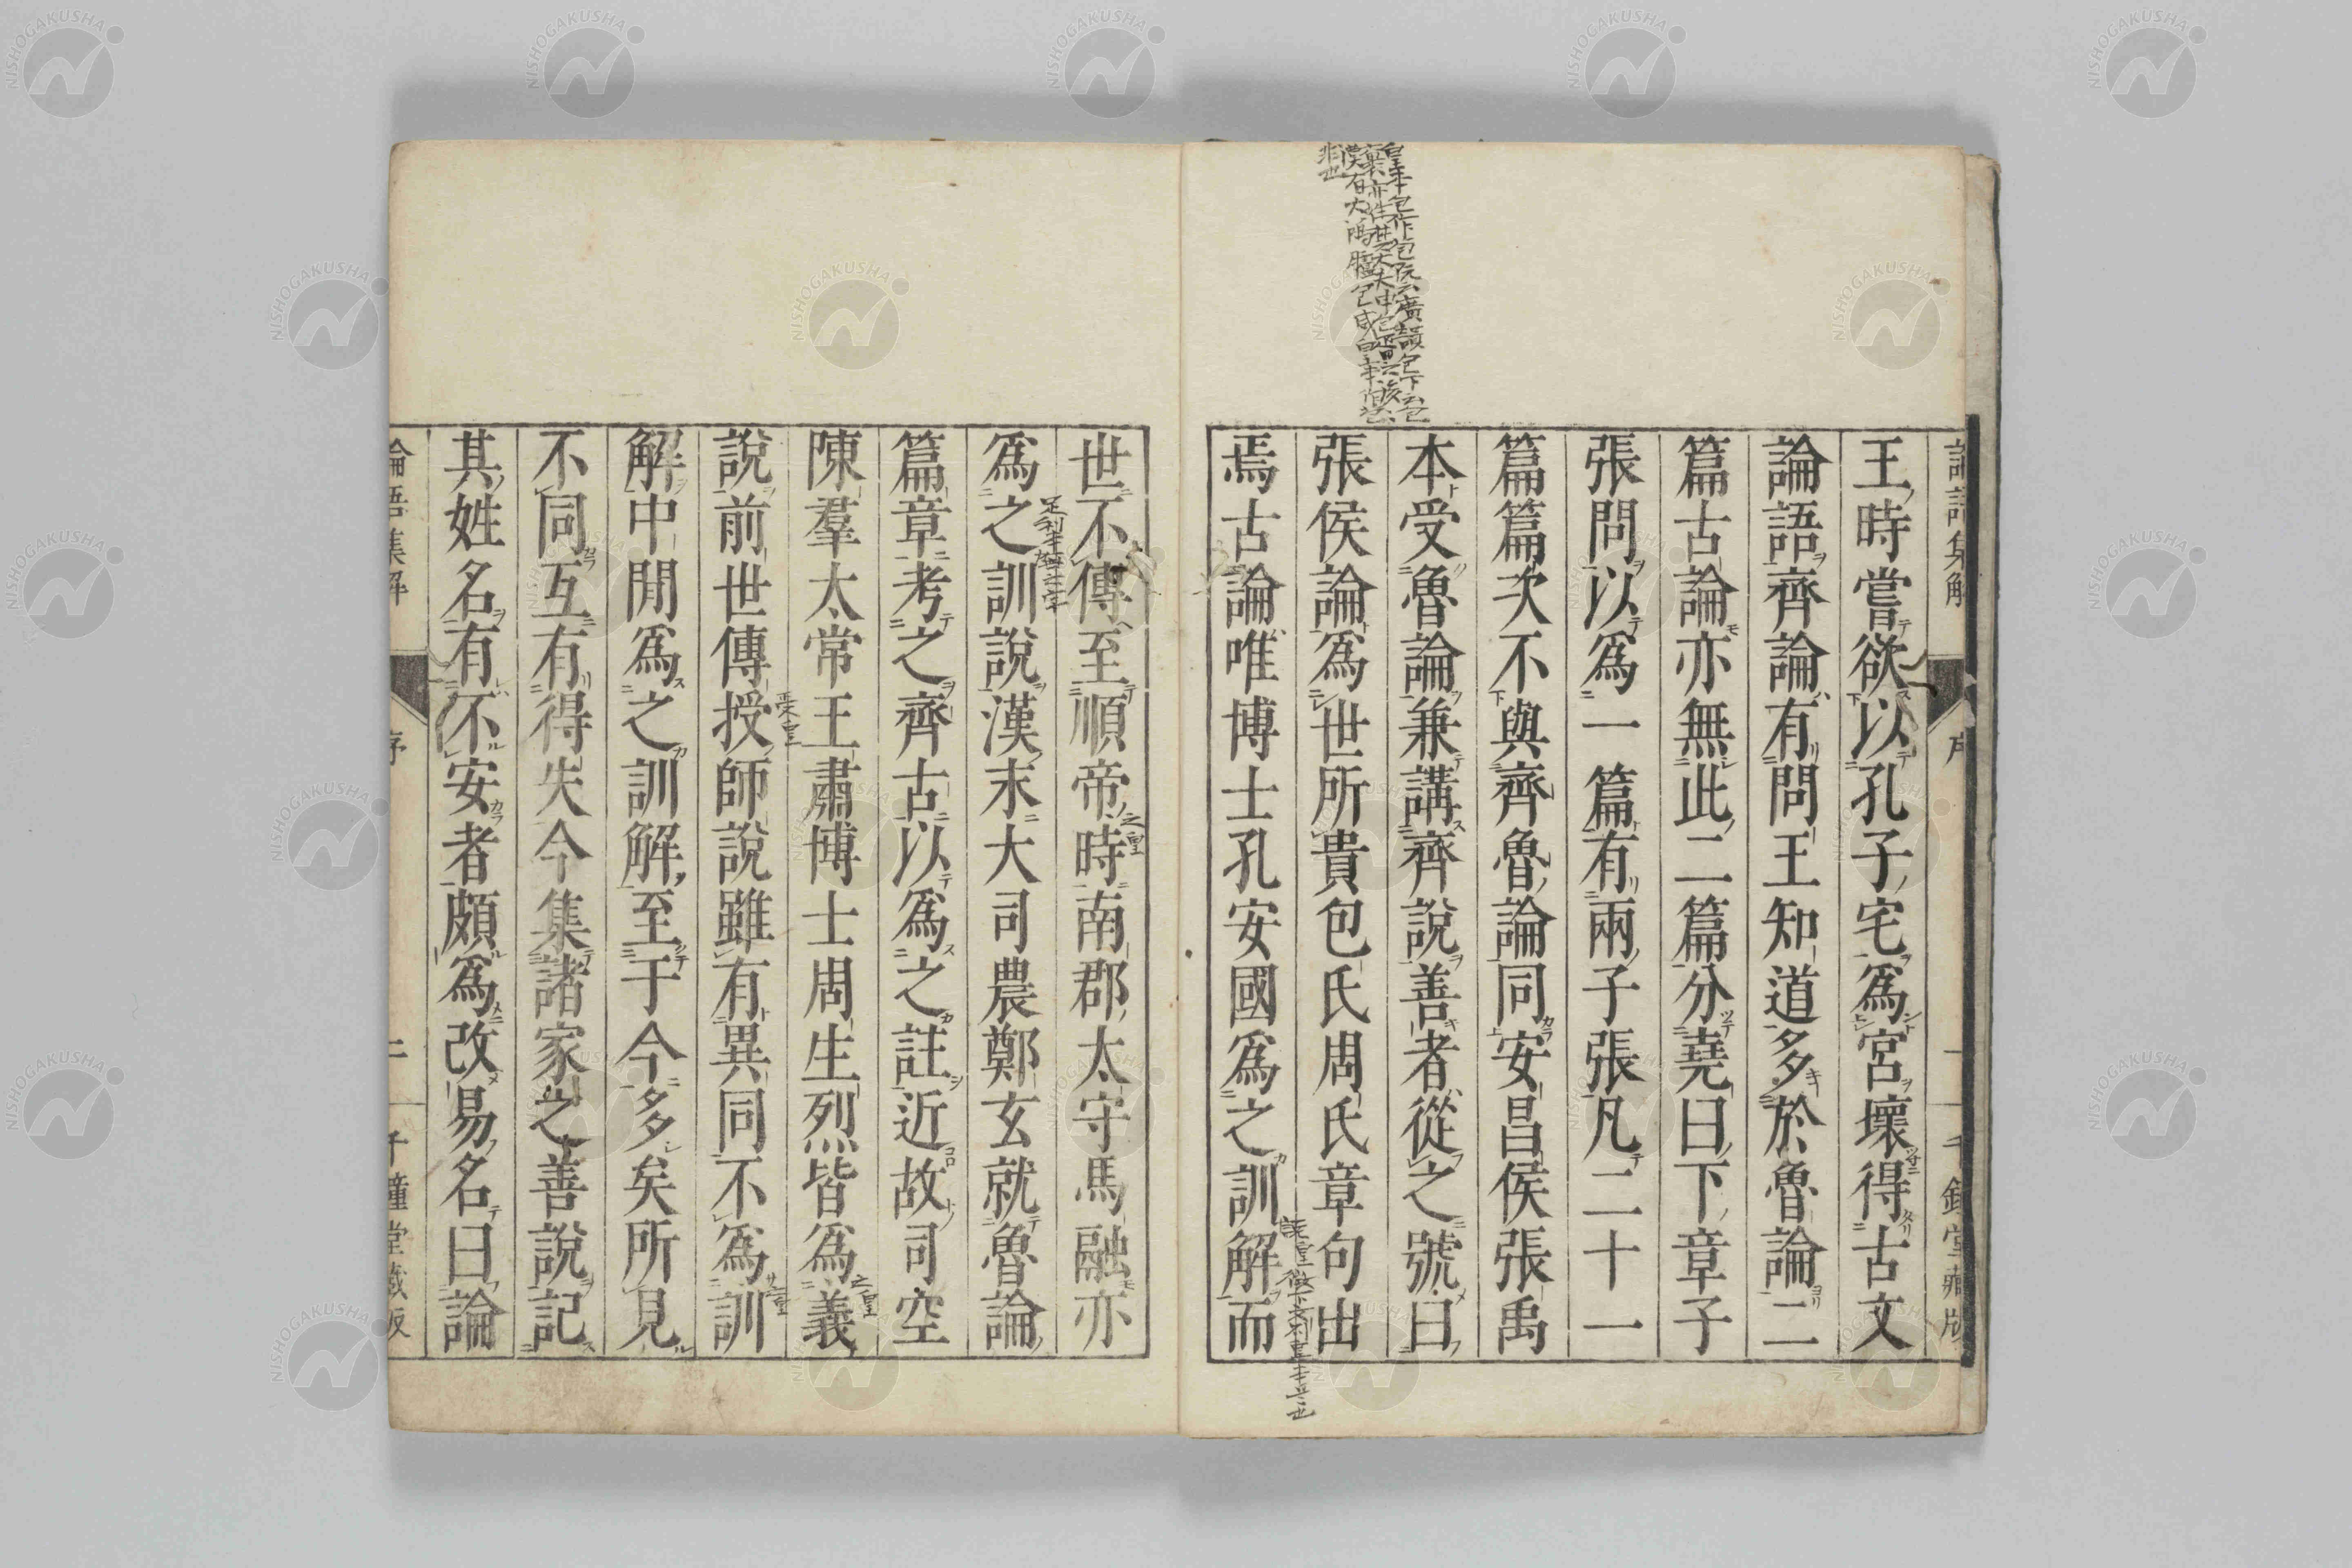 王時嘗欲以孔子宅爲宮壞得古文
論語齊論有問王知道多於魯論二
篇古論亦無此二篇分堯曰下章子
張問以爲一篇有兩子張凡二十一
篇篇次不與齊魯論同安昌侯張禹
本受魯論兼講齊說善者從之號曰
張侯論爲世所貴包氏周氏章句出
焉古論唯博士孔安國爲之訓解而
世不傳至順帝時南郡太守馬融亦
爲之訓說漢末大司農鄭玄就魯論
篇章考之齊古以爲之註近故司空
陳羣太常王肅博士周生烈皆爲義
說前世傳授師說雖有異同不爲訓
解中閒爲之訓解至于今多矣所見
不同互有得失今集諸家之善說記
其姓名有不安者頗爲改易名曰論
論語集解
序
二
千鍾堂藏版
NISHOGAKUSHA